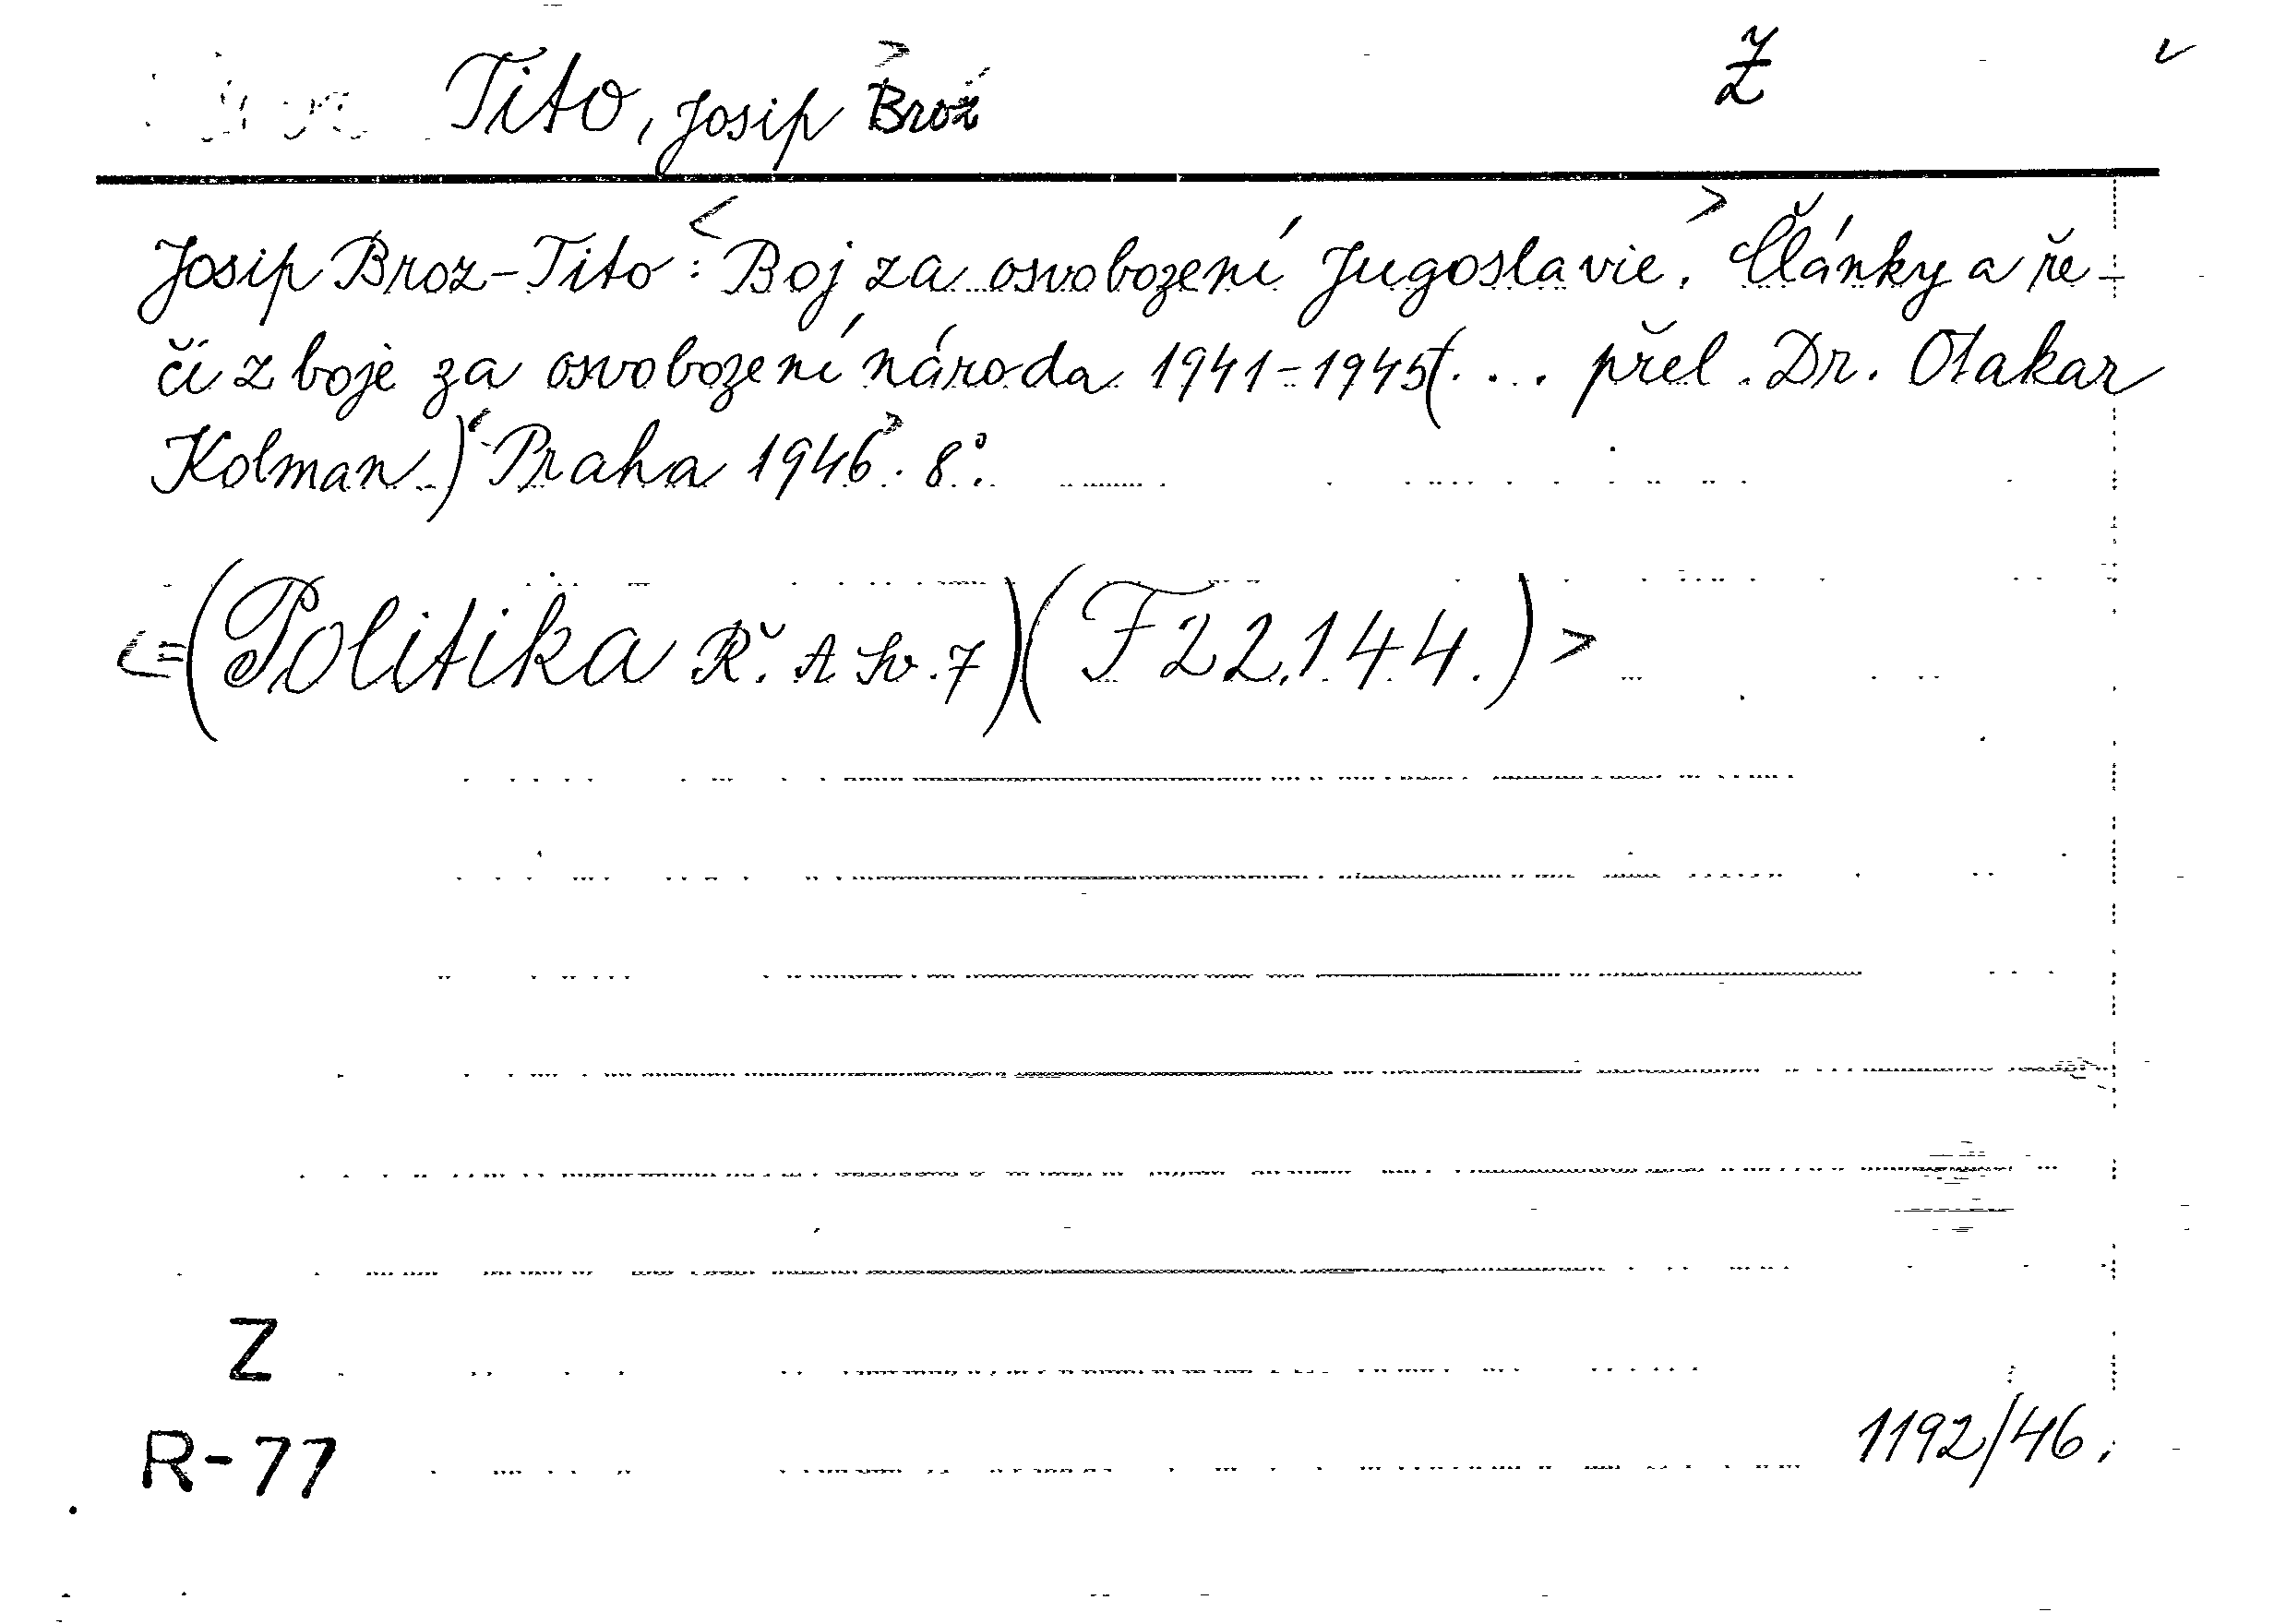 Tito, Josip Brož > Ž
Josip Broz-Tito: <Boj za osvobození Jugoslavie.> Články a ře-
či z boje za osvobození národa 1941-1945(... přel. Dr. Otakar
Kolman.) <Praha 1946>. 8°.
<=(Politika Ř. A Sv. 7)(F 22.144.)>
Z
R-77
1192/46.